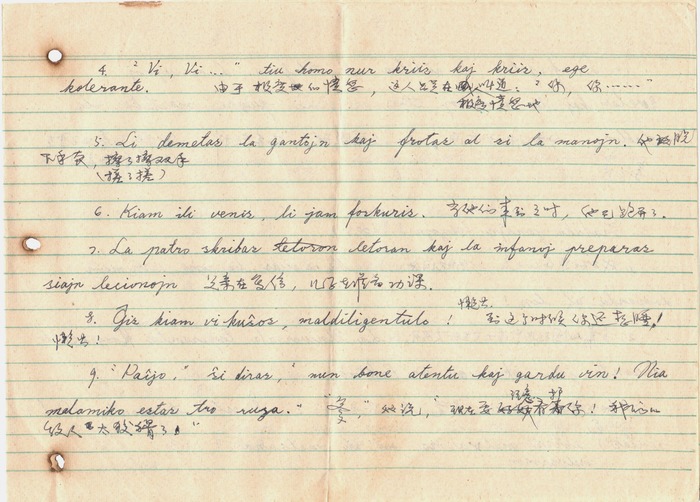 4. "Vi, Vi ..." tiu homo nur kriis kaj kriis, ege
kolerante. 由于极度的愤怒，这人只是在叫道："你，你……"
极度愤怒地
5. Li demetas la gantojn kaj frotas al si la manojn. 他脱
下手套，搓了搓双手
（搓了搓）
6. Kiam ili venis, li jam forkuris. 当他们来到之时，他已跑开了。
7. La patro skribas letoron letoran kaj la infanoj preparas
siajn lecionojn 父亲在写信，儿子在准备功课。
懒虫
8. Ĝis kiam vi kuŝos, maldiligentulo! 到这个时候你还想睡！
懒虫！
9. "Paĉjo," ŝi diras, "nun bone atentu kaj gardu vin! Nia
malamiko estas tro ruza." "爹爹，"她说，"现在要好好看着你！我们的
敌人太狡猾了。"